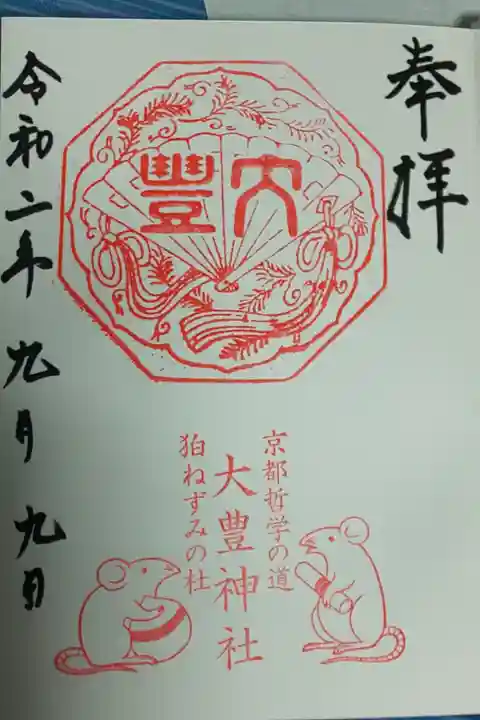 奉拝
大豐
京都哲学の道
大豊神社
狛ねずみの社
令和二年九月九日